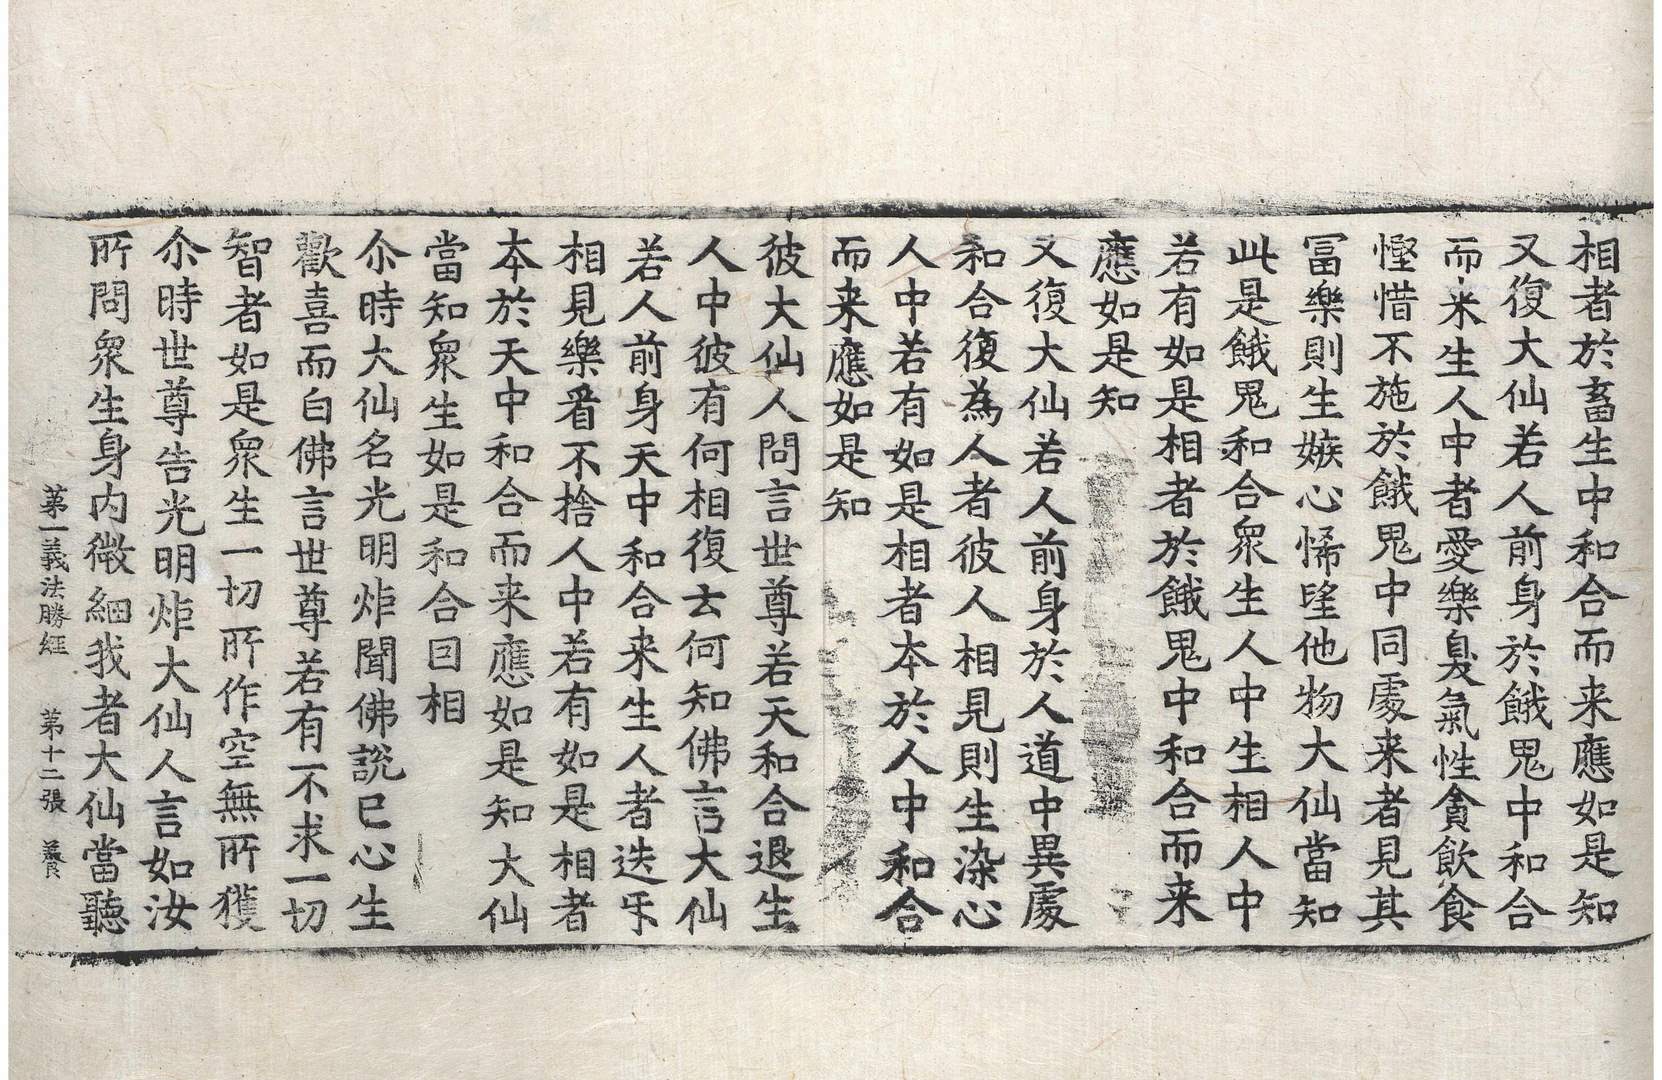 相者於畜生中和合而来應如是知
又復大仙若人前身於餓鬼中和合
而来生人中者愛樂臭氣性貪飲食
慳惜不施於餓鬼中同處来者見其
冨樂則生嫉心悕望他物大仙當知
此是餓鬼和合衆生人中生相人中
若有如是相者於餓鬼中和合而来
應如是知
又復大仙若人前身於人道中異處
和合復為人者彼人相見則生染心
人中若有如是相者本於人中和合
而来應如是知
彼大仙人問言世尊若天和合退生
人中彼有何相復云何知佛言大仙
若人前身天中和合来生人者迭㸦
相見樂看不捨人中若有如是相者
夲於天中和合而来應如是知大仙
當知衆生如是和合囙相
尒時大仙名光明炸聞佛說已心生
歡喜而白佛言世尊若有不求一切
智者如是衆生一切所作空無所獲
尒時世尊告光明炸大仙人言如汝
所問衆生身内微細我者大仙當聽
第一義法勝經 第十二張 養